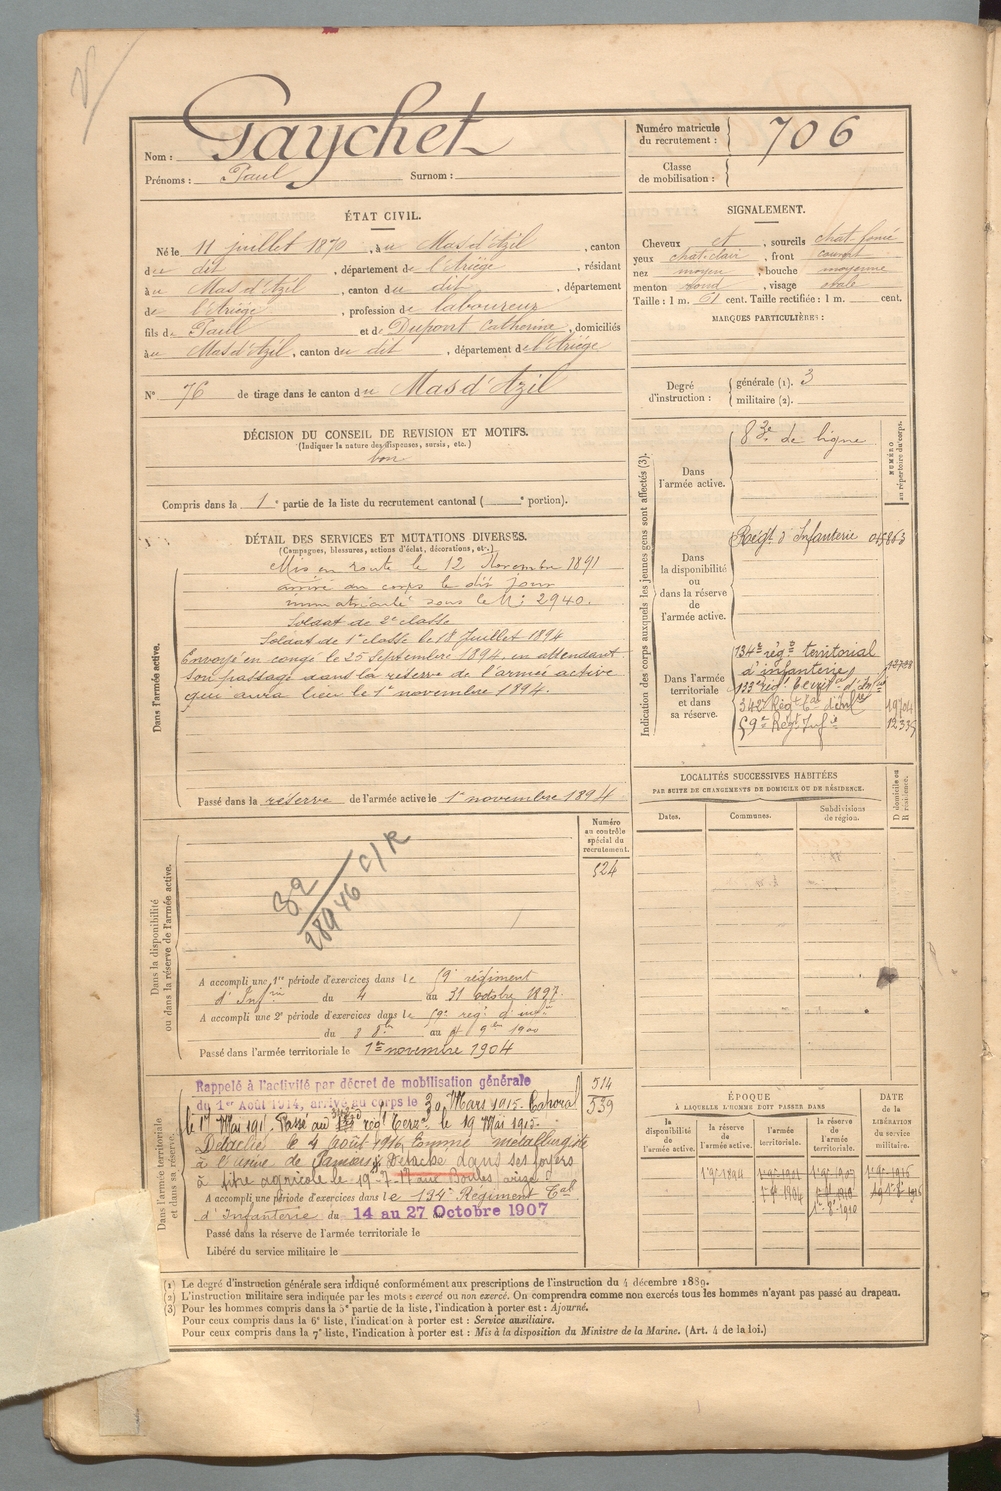 Nom : Gaychet
Prénoms : Paul Surnom :
Numéro matricule du recrutement : 706
Classe de mobilisation :
ÉTAT CIVIL.
Né le 11 juillet 1870, à u Mas d'Azil, canton
du dit, département de l'Ariège, résidant
à u Mas d'Azil, canton du dit, département
de l'Ariège, profession de laboureur
fils de Paul et de Dupont Catherine, domiciliés
à u Mas d'Azil, canton du dit, département de l'Ariège
N° 76 de tirage dans le canton du Mas d'Azil
SIGNALEMENT.
Cheveux et, sourcils chat. foncé
yeux chat. clair, front couvert
nez moyen, bouche moyenne
menton rond, visage ovale
Taille : 1 m. 61 cent. Taille rectifiée : 1 m. cent.
MARQUES PARTICULIÈRES :
Degré d'instruction : générale (1). 3
militaire (2).
DÉCISION DU CONSEIL DE REVISION ET MOTIFS.
(Indiquer la nature des dispenses, sursis, etc.)
bon
Compris dans la 1e partie de la liste du recrutement cantonal ( e portion).
DÉTAIL DES SERVICES ET MUTATIONS DIVERSES.
(Campagnes, blessures, actions d'éclat, décorations, etc.)
Dans l'armée active.
Mis en route le 12 Novembre 1891
arrivé au corps le dit jour
immatriculé sous le N° 2940.
Soldat de 2e classe
Soldat de 1e classe le 18 Juillet 1894
Envoyé en congé le 25 Septembre 1894, en attendant
son passage dans la réserve de l'armée active
qui aura lieu le 1er novembre 1894.
Passé dans la réserve de l'armée active le 1er novembre 1894
Indication des corps auxquels les jeunes gens sont affectés (3).
NUMÉRO au répertoire du corps.
Dans l'armée active.
83e de ligne
Dans la disponibilité ou dans la réserve de l'armée active.
Régt d'Infanterie
Dans l'armée territoriale et dans sa réserve.
134e régt territorial
d'infanterie
133e régt territ. d'Infie
342e Régt Tal d'Infie 19704
59e Régt Infie 12339
LOCALITÉS SUCCESSIVES HABITÉES
PAR SUITE DE CHANGEMENTS DE DOMICILE OU DE RÉSIDENCE.
Dates. Communes. Subdivisions de région. D domicile ou R résidence.
Dans la disponibilité ou dans la réserve de l'armée active.
Numéro au contrôle spécial du recrutement.
524
32
28946 C/R
A accompli une 1re période d'exercices dans le 59e régiment
d'Infrie du 4 au 31 Octobre 1897.
A accompli une 2e période d'exercices dans le 59e régt d'infie
du 8 8bre au 4 9bre 1900
Passé dans l'armée territoriale le 1er novembre 1904
Dans l'armée territoriale et dans sa réserve.
514
539
Rappelé à l'activité par décret de mobilisation générale
du 1er Août 1914, arrivé au corps le 30 Mars 1915. Caporal
le 17 Mai 1915. Passé au régt Terral le 19 Mai 1915.
Détaché le 4 Août 1916 Comme métallurgiste
à l'usine de Pamiers. Détaché dans ses foyers
à titre agricole le 19-7-17 aux Bordes s/ Arize
A accompli une période d'exercices dans le 134e Régiment Tal
d'Infanterie du 14 au 27 Octobre 1907
Passé dans la réserve de l'armée territoriale le
Libéré du service militaire le
ÉPOQUE
À LAQUELLE L'HOMME DOIT PASSER DANS
la disponibilité de l'armée active. la réserve de l'armée active. l'armée territoriale. la réserve de l'armée territoriale.
DATE de la LIBÉRATION du service militaire.
(1) Le degré d'instruction générale sera indiqué conformément aux prescriptions de l'instruction du 4 décembre 1889.
(2) L'instruction militaire sera indiquée par les mots : exercé ou non exercé. On comprendra comme non exercés tous les hommes n'ayant pas passé au drapeau.
(3) Pour les hommes compris dans la 5e partie de la liste, l'indication à porter est : Ajourné.
Pour ceux compris dans la 6e liste, l'indication à porter est : Service auxiliaire.
Pour ceux compris dans la 7e liste, l'indication à porter est : Mis à la disposition du Ministre de la Marine. (Art. 4 de la loi.)